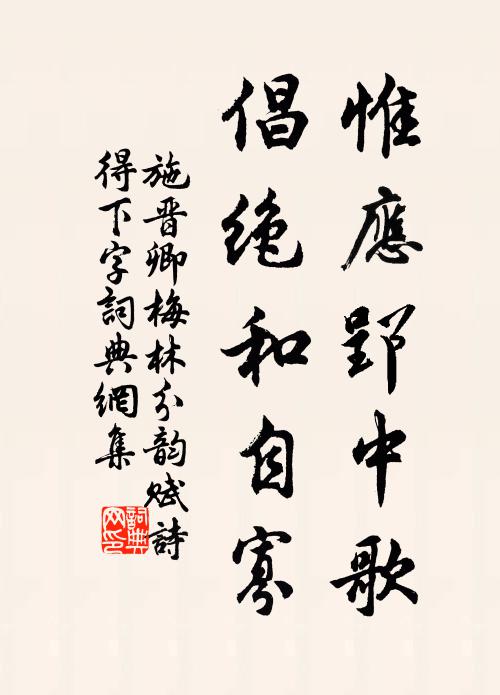 惟應郢中歌
倡绝和自寡
施晋卿梅林分韵赋詩
得下字詞典網集
詞典网印